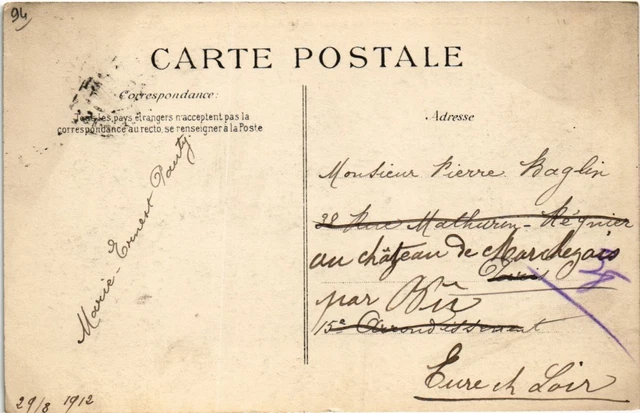 94
CARTE POSTALE
Correspondance:
Tous les pays étrangers n'acceptent pas la
correspondance au recto, se renseigner à la Poste
Adresse
Marie-Ernest Pauty
29/8 1912
Monsieur Pierre Baglin
38 Rue Mathurin-Régnier
au château de Marchezais
Paris
par Bû
15e Arrondissement
Eure et Loir